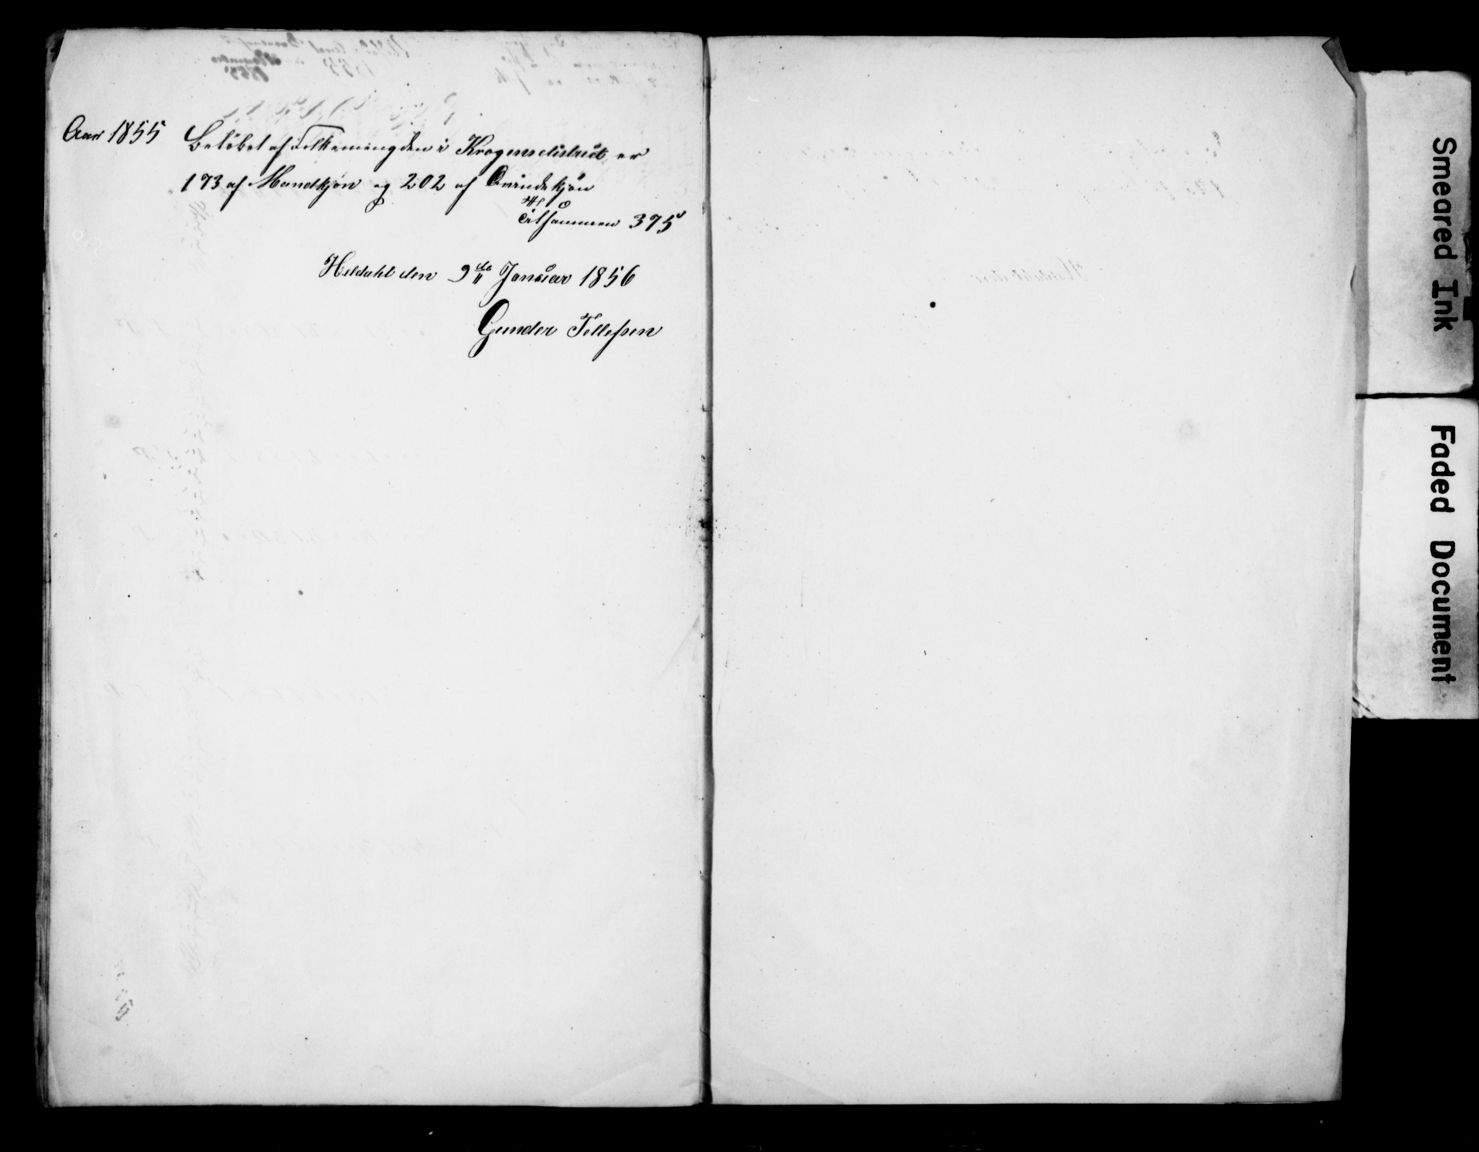 Aar 1855 Beløbet af Folkemængden i Krogens district er
173 af Mandkjøn og 202 af Qvindekjøn
tilsammen 375
Heldahl den 9de Januar 1856
Gunder Tellefsen
Smeared Ink
Faded Document